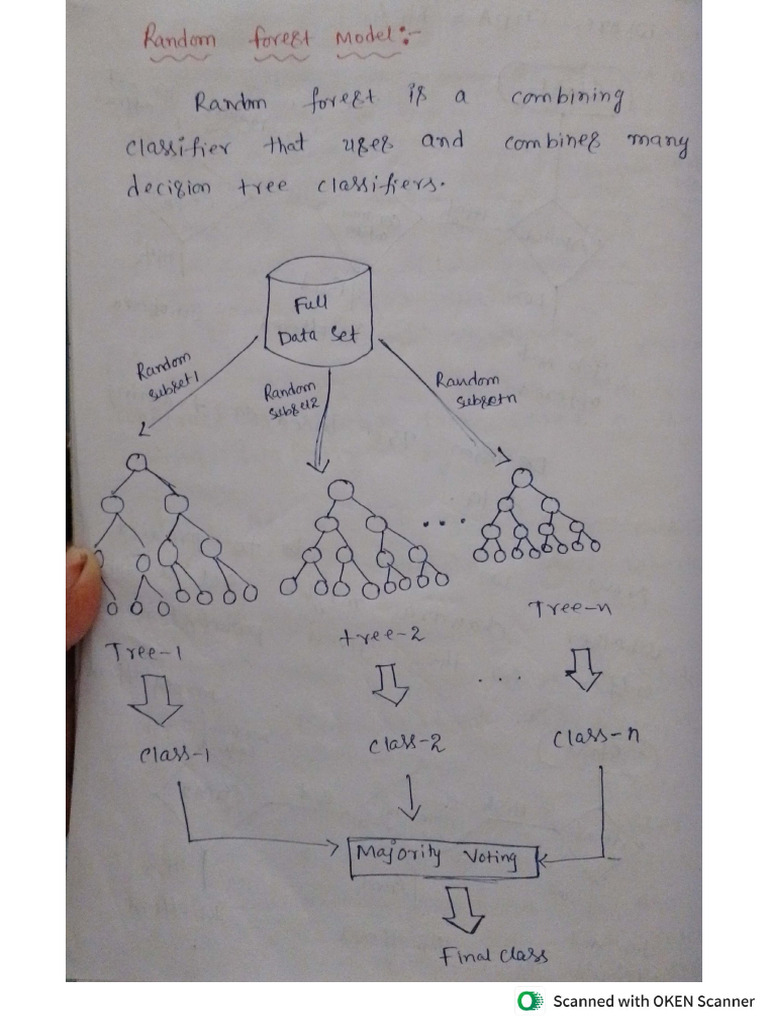 Random forest Model:-
Randm forest is a combining
classifier that uses and combines many
decision tree classifiers.
Full
Data Set
Random
subset1
Random
subset2
Random
subsetn
...
Tree-1
tree-2
Tree-n
...
Class-1
Class-2
Class-n
Majority Voting
Final class
Scanned with OKEN Scanner